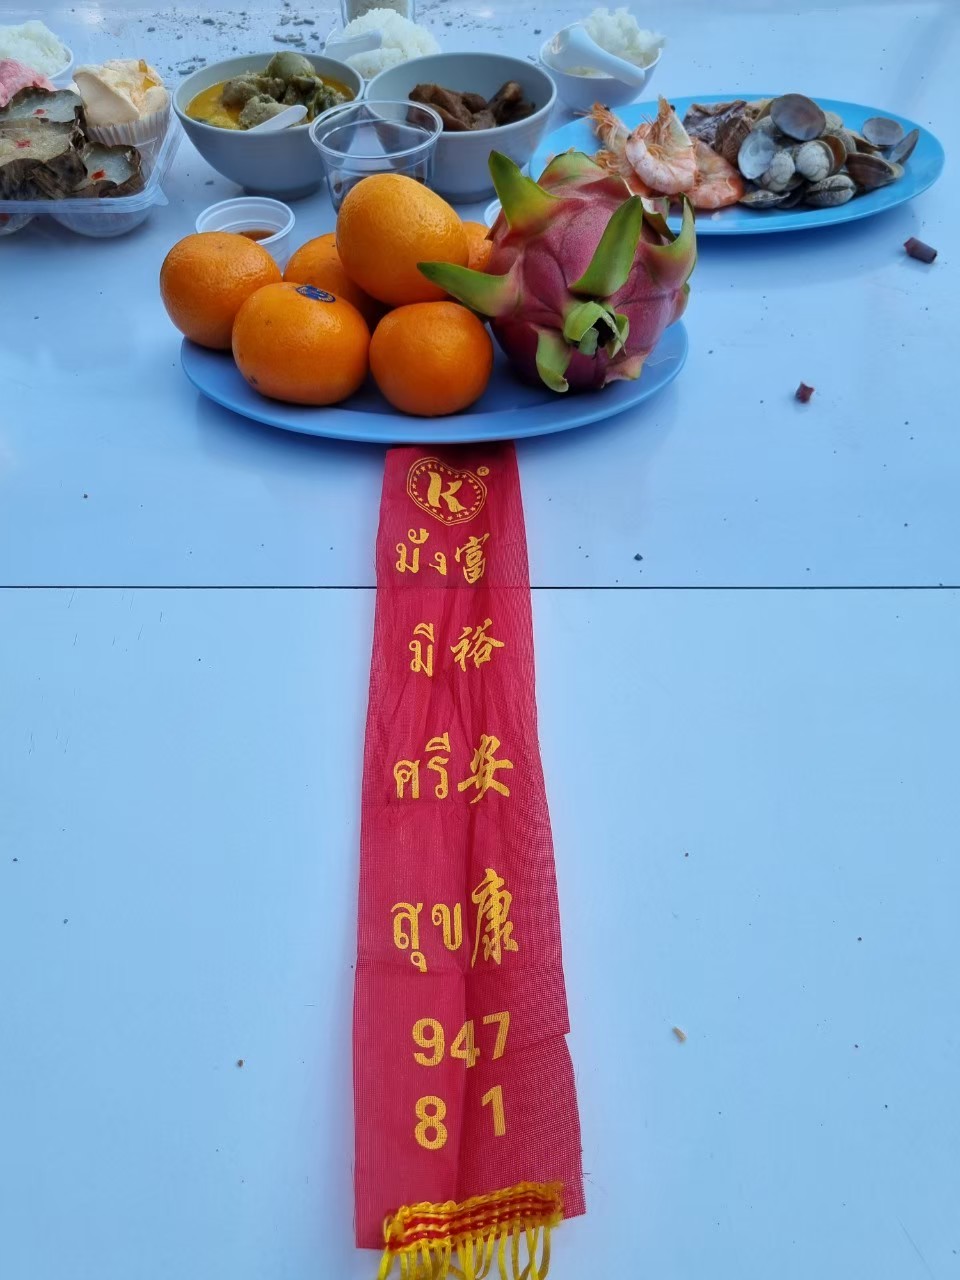 K ®
มั่ง富
มี裕
ศรี安
สุข康
947
8 1